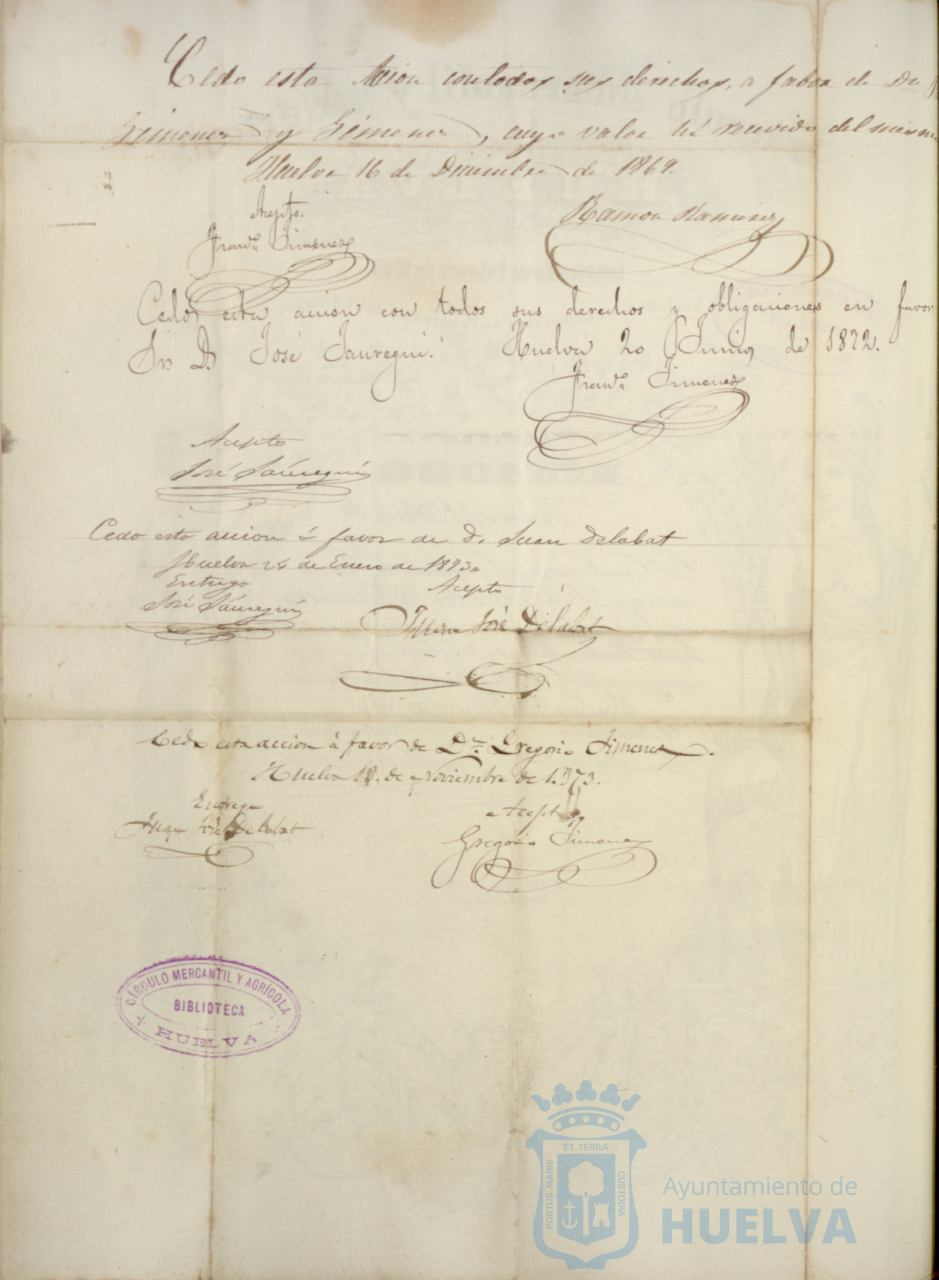 Cedo esta Accion con todos sus derechos, a fabor de Dn
Gimenez y Gimenez, cuyo valor hé recivido del mismo
Huelva 16 de Diciembre de 1869.
Acepto.
Ramon Ramirez
Franco. Jimenez
Cedo esta accion con todos sus derechos y obligaciones en favor
Sr. D. José Jauregui. Huelva 20 Junio de 1872.
Franco. Jimenez
Acepto
José Jáuregui
Cedo esta accion á favor de D. Juan Delabat
Huelva 24 de Enero de 1873
Entrego
Acepto
José Jáuregui
Juan José Delabat
Cedo esta accion á favor de Dn. Gregorio Jimenez.
Huelva 18 de Noviembre de 1873.
Entrego
Acepto
Juan José Delabat
Gregorio Jimenez
CÍRCULO MERCANTIL Y AGRÍCOLA
BIBLIOTECA
HUELVA
PORTUS MARIS
ET TERRÆ
CUSTODIA
Ayuntamiento de
HUELVA